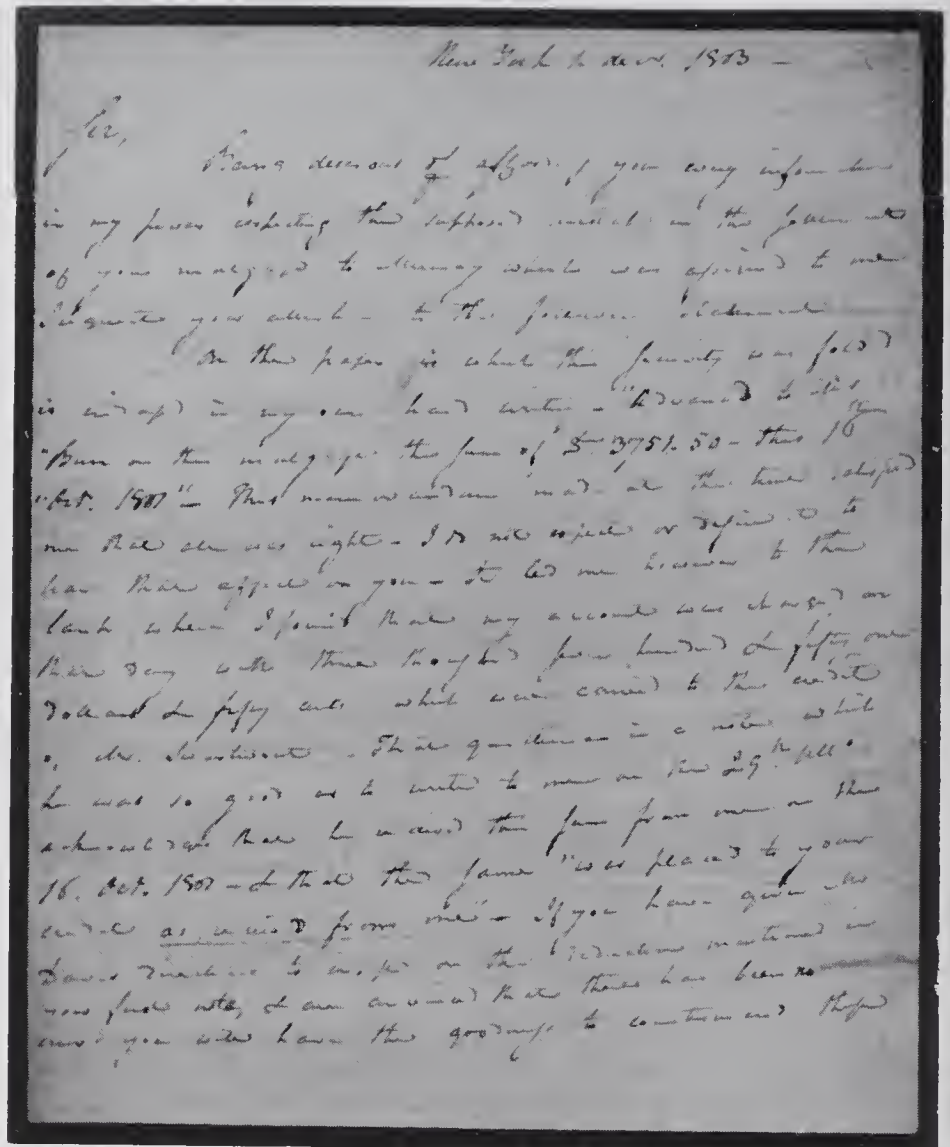 New York 6 decr. 1803 -
Sir,
Being desirous of affording you every information
in my power respecting the supposed mistake in the
of your mortgage to which was assigned to me
I request your attention to the following statement
On the paper in which this security was fold
is in my own hand writing - "Advanced to Col.
"Burr on this mortgage the sum of $ 3751.50 - this 16
"Oct. 1801" - This memorandum made at the time satisfied
me that all was right - I do not expect or desire it to
have that effect on you - It led me however to the
bank where I found that my account was charged on
that day with three thousand seven hundred & fifty one
dollars & fifty cents which were carried to the credit
of Mr. Swartwout - That gentleman in a note which
he was so good as to write to me on the 29th. ult.
acknowledges that he received this sum from me on the
16. Oct. 1801 - & that the same "was placed to your
credit as received from me" - If you have given Mr
Davis directions to insist on the deduction mentioned in
your first note, & are convinced that there has been no
error you will have the goodness to countermand those